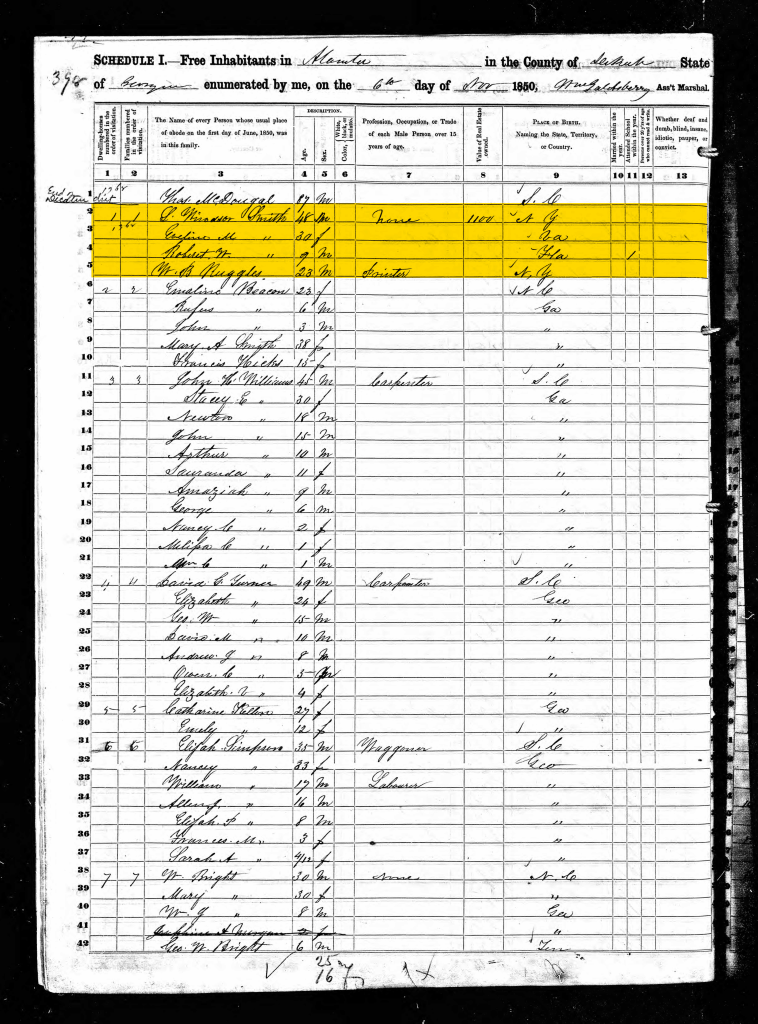 398
SCHEDULE I.—Free Inhabitants in Atlanta in the County of DeKalb State
of Georgia enumerated by me, on the 6th day of Nov 1850; Wm Goldsberry Ass't Marshal.
Dwelling-houses numbered in the order of visitation.
Families numbered in the order of visitation.
The Name of every Person whose usual place of abode on the first day of June, 1850, was in this family.
DESCRIPTION.
Age.
Sex.
Color, { White, black, or mulatto.
Profession, Occupation, or Trade of each Male Person over 15 years of age.
Value of Real Estate owned.
PLACE OF BIRTH. Naming the State, Territory, or Country.
Married within the year.
Attended School within the year.
Persons over 20 y'rs of age who cannot read & write.
Whether deaf and dumb, blind, insane, idiotic, pauper, or convict.
1 2 3 4 5 6 7 8 9 10 11 12 13
1 Thos. McDougal 27 M S. C
2 1 1 Windsor Smith 48 M None 1100 N Y
3 Eveline M " 30 f Va
4 Robert W. " 9 M Fla 1
5 W. B Ruggles 23 M Printer N. Y
6 2 2 Emaline Beacon 23 f N C
7 Rufus " 6 M Ga
8 John " 3 M "
9 Mary A Smith 38 f "
10 Francis Hicks 15 f "
11 3 3 John H. Williams 45 M Carpenter S. C
12 Stacey E " 30 f Ga
13 Newton " 18 M "
14 John " 15 M "
15 Arthur " 10 M "
16 Sauranda " 11 f "
17 Amaziah " 9 M "
18 George " 6 M "
19 Nancy C " 2 f "
20 Melissa C " 1 f "
21 C " 1 M "
22 4 4 David C Turner 49 M Carpenter S. C
23 Elizabeth " 24 f Geo
24 Geo. W " 15 M "
25 David. M " " 10 M "
26 Andrew J " 8 M "
27 Owen. C " 5 M "
28 Elizabeth. V " 4 f "
29 5 5 Catharine 27 f Geo
30 Emely " 12 f "
31 6 6 Elijah Simpson 35 M Waggoner S. C
32 Nancy " 33 f Geo
33 William " 17 M Labourer "
34 Allen J " 16 M "
35 Elijah P " 8 M "
36 Frances. M " 3 f "
37 Sarah A " 4/12 f "
38 7 7 W. Bright 30 M None N. C
39 Mary " 30 f "
40 W. J " 8 M Geo
41 Josephine A Morgan 2 f "
42 Geo. W Bright 6 M Ten
25
16